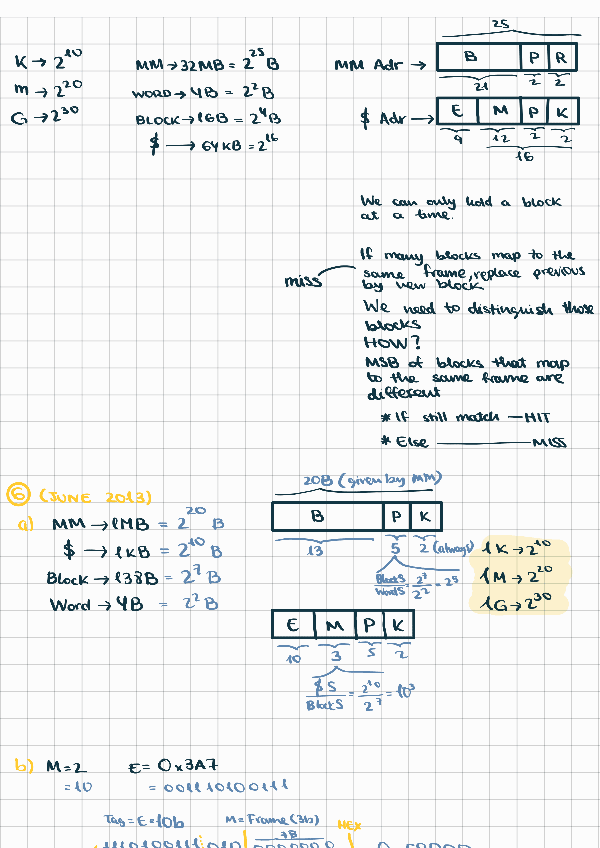 K → 2^10
m → 2^20
G → 2^30
MM → 32MB = 2^25 B
WORD → 4B = 2^2 B
BLOCK → 16B = 2^4 B
$ → 64KB = 2^16
25
MM Adr →
B P R
21 2 2
$ Adr →
E M P K
9 12 2 2
16
We can only hold a block
at a time.
If many blocks map to the
same frame, replace previous
by new block
miss
We need to distinguish those
blocks
HOW?
MSB of blocks that map
to the same frame are
different
* If still match — HIT
* Else — MISS
⑥ (JUNE 2013)
a) MM → 1MB = 2^20 B
$ → 1KB = 2^10 B
Block → 138B = 2^7 B
Word → 4B = 2^2 B
20B (given by MM)
B P K
13 5 2 (always)
BlockS/WordS = 2^7/2^2 = 2^5
1K → 2^10
1M → 2^20
1G → 2^30
E M P K
10 3 5 2
$S/BlockS = 2^10/2^7 = 10^3
b) M=2 E= 0x3A7
=10 = 001110100111
Tag = E = 10b M = Frame (3b)
7B
HEX